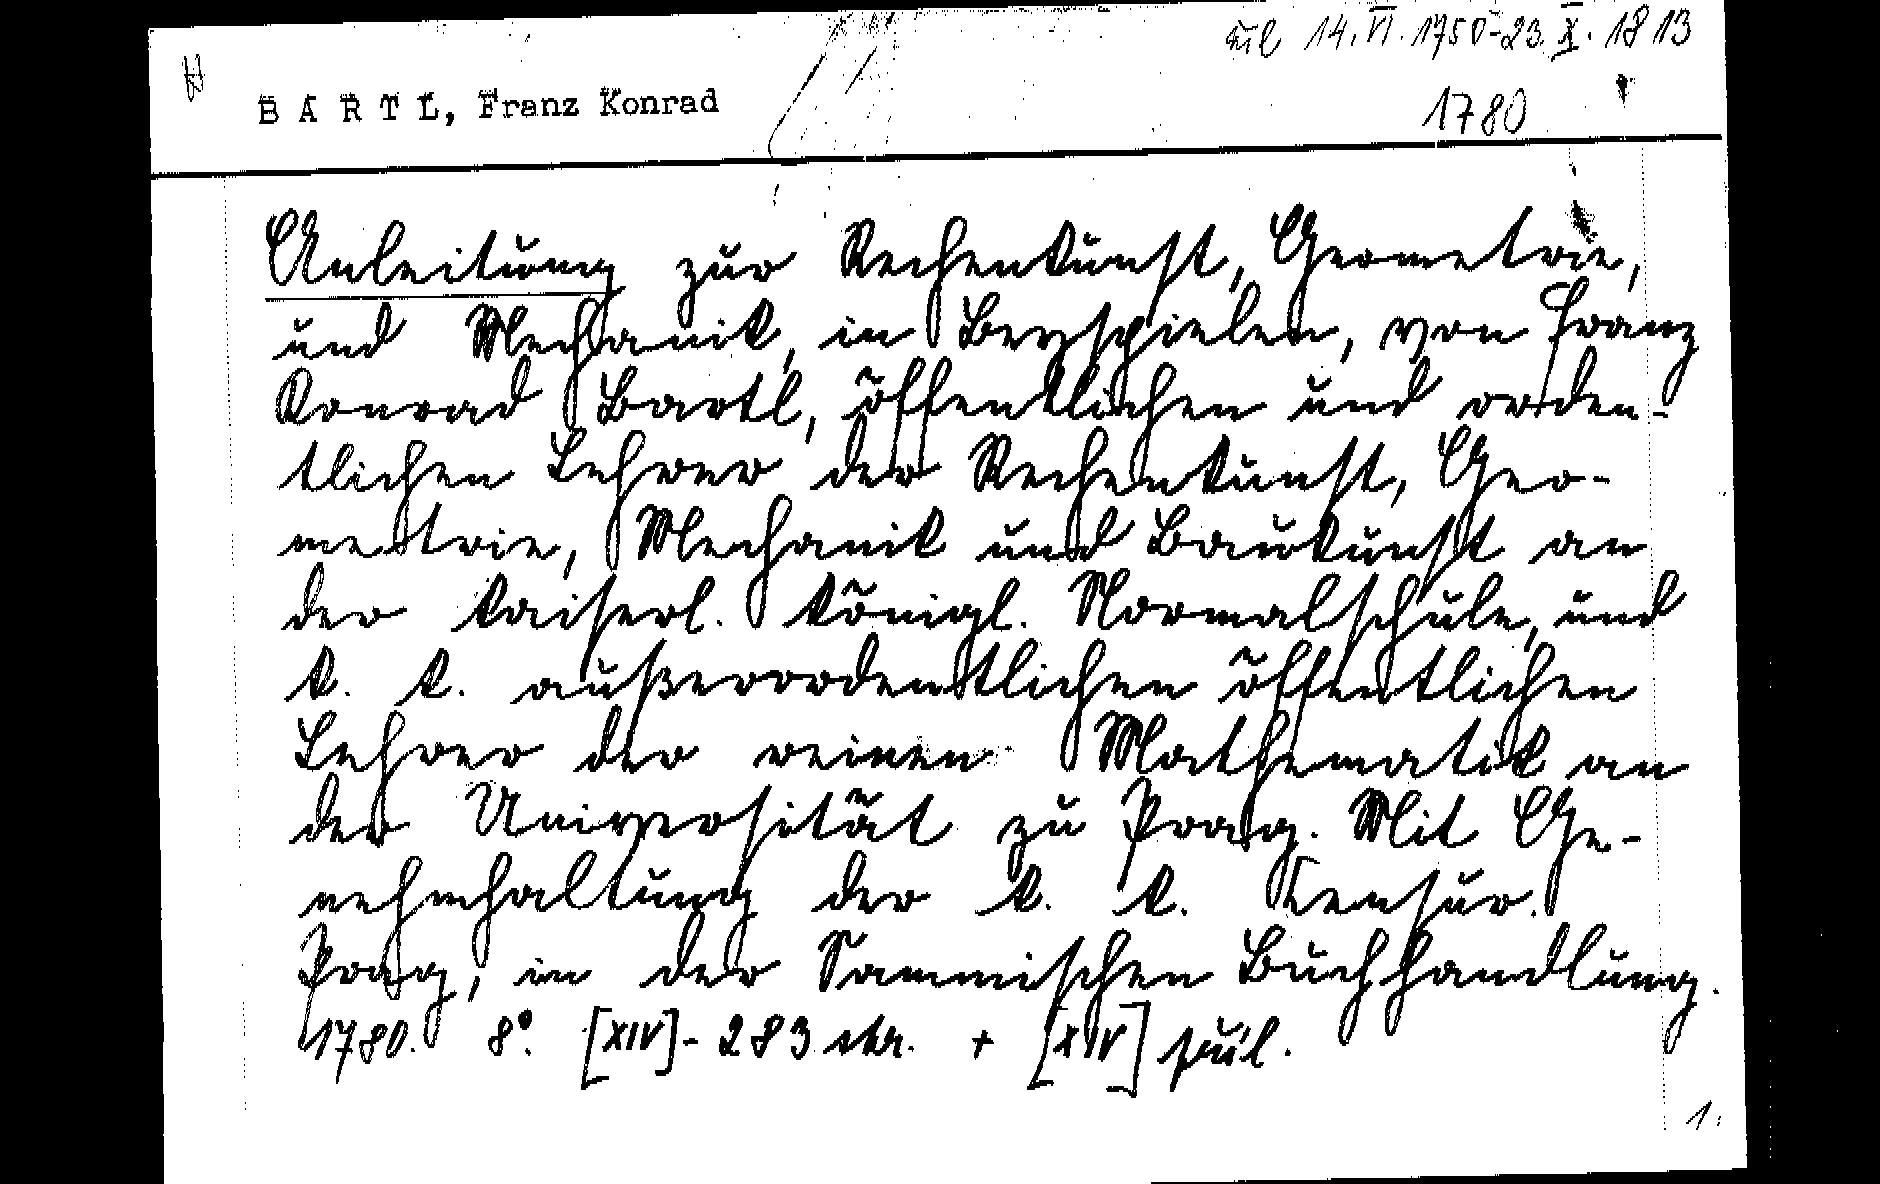 14.VI.1750-23.X.1813
N
BARTL, Franz Konrad
1780
Anleitung zur Rechenkunst, Geometrie,
und Mechanik, in Beyspielen, von Franz
Konrad Bartl, öffentlichen und orden-
tlichen Lehrer der Rechenkunst, Geo-
metrie, Mechanik und Baukunst an
der kaiserl. königl. Normalschule, und
k. k. außerordentlichen öffentlichen
Lehrer der reinen Mathematik an
der Universität zu Prag. Mit Ge-
nehmhaltung der k. k. Censur.
Prag, in der Sammischen Buchhandlung.
1780. 8°. [XIV]-283 str. + [XIV] příl.
1.